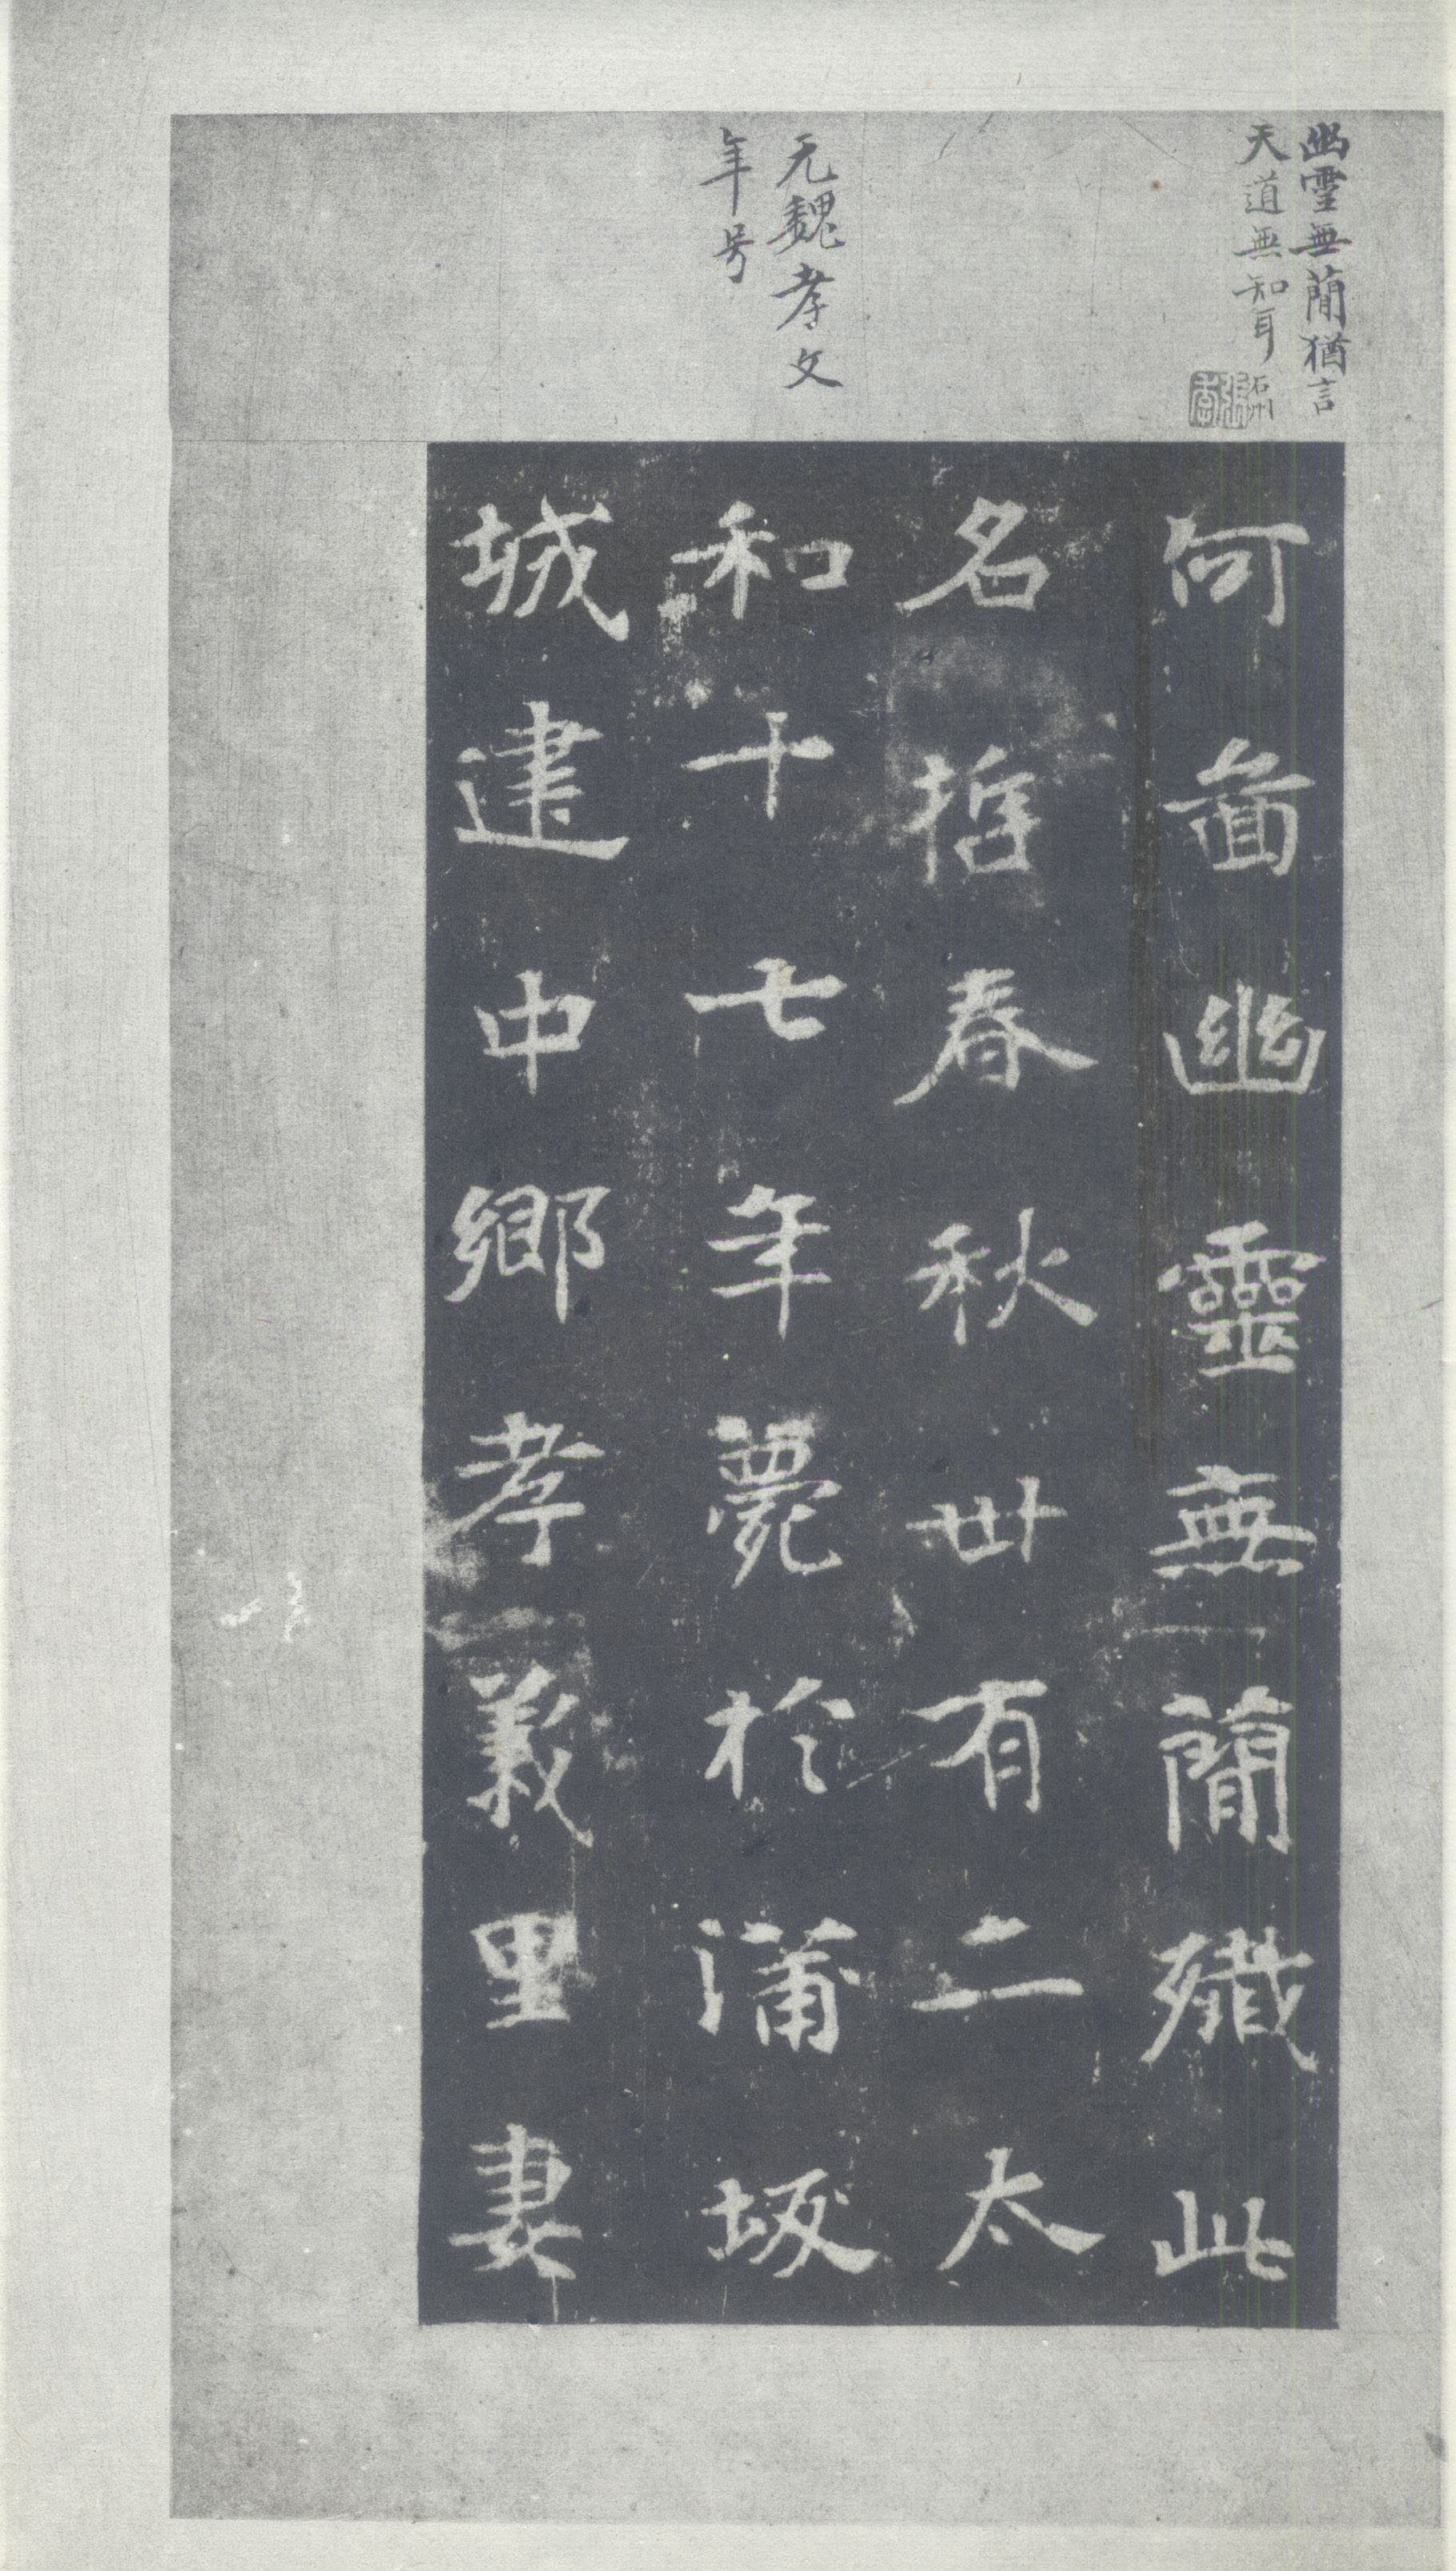 幽靈無簡猶言
天道無知耳
石州
元魏孝文
年号
何啚幽靈無簡殲此
名哲春秋卌有二太
和十七年薨於蒲坂
城建中鄉孝義里妻